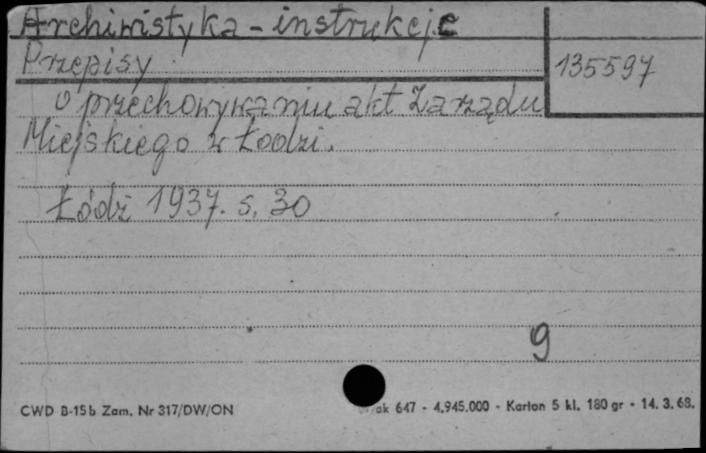 Archiwistyka - instrukcje
Przepisy
135597
o przechowywaniu akt Zarządu
Miejskiego w Łodzi.
Łódź 1937. s. 30
9
CWD B-15b Zam. Nr 317/DW/ON
ak 647 - 4.945.000 - Karton 5 kl. 180 gr - 14. 3. 68.